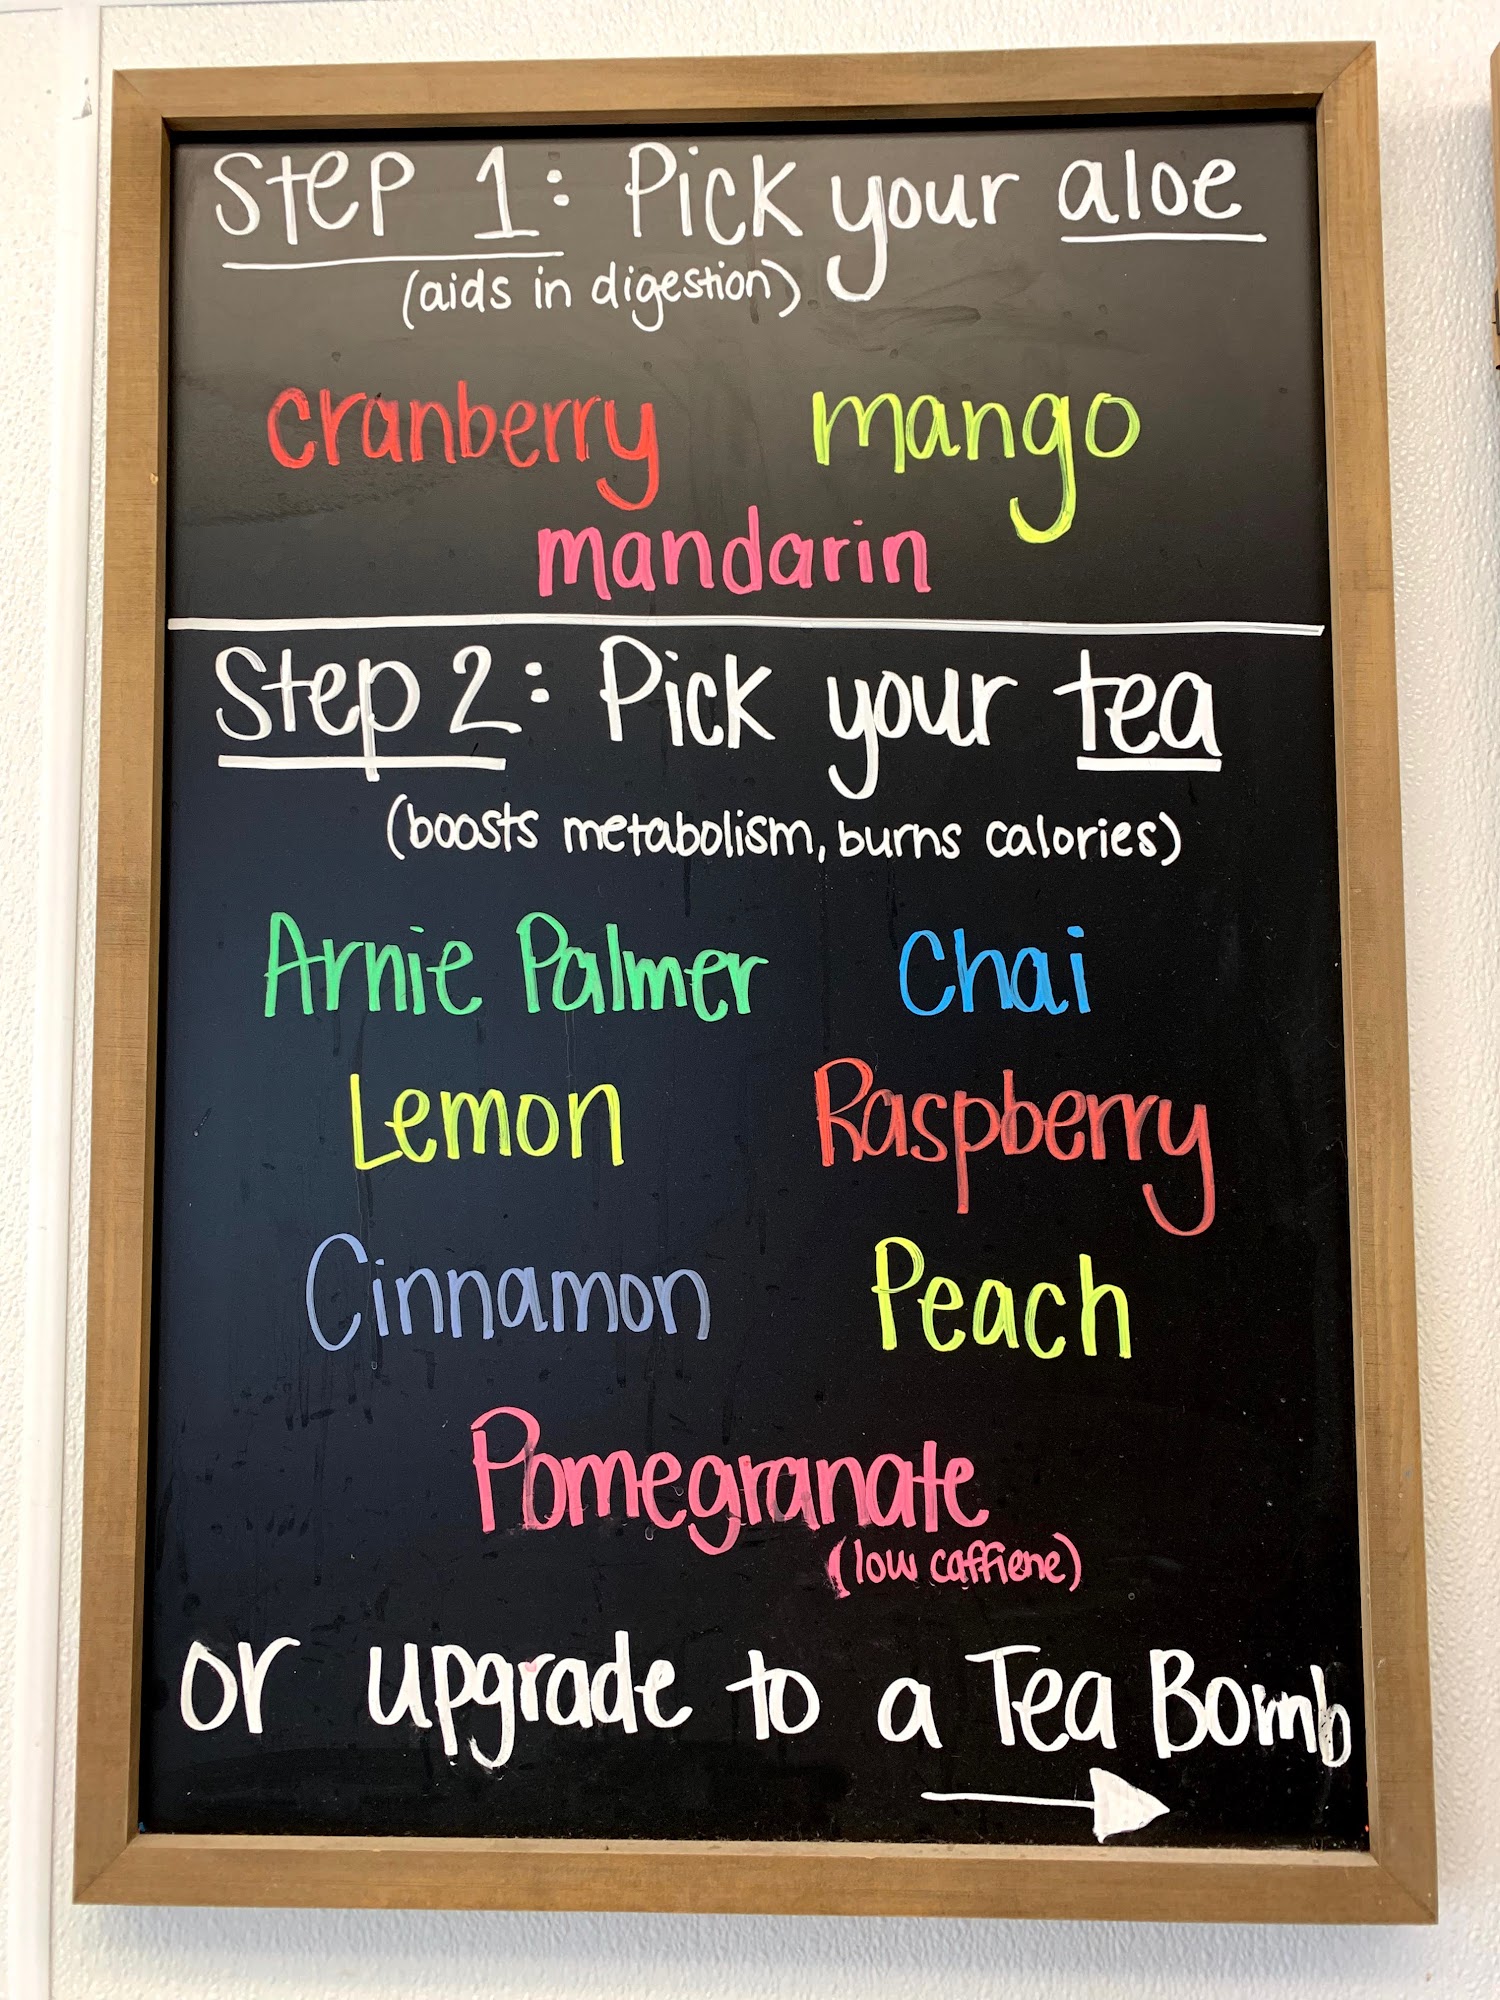 Step 1: Pick your aloe
(aids in digestion)
cranberry mango
mandarin
Step 2: Pick your tea
(boosts metabolism, burns calories)
Arnie Palmer Chai
Lemon Raspberry
Cinnamon Peach
Pomegranate
(low caffiene)
or upgrade to a Tea Bomb